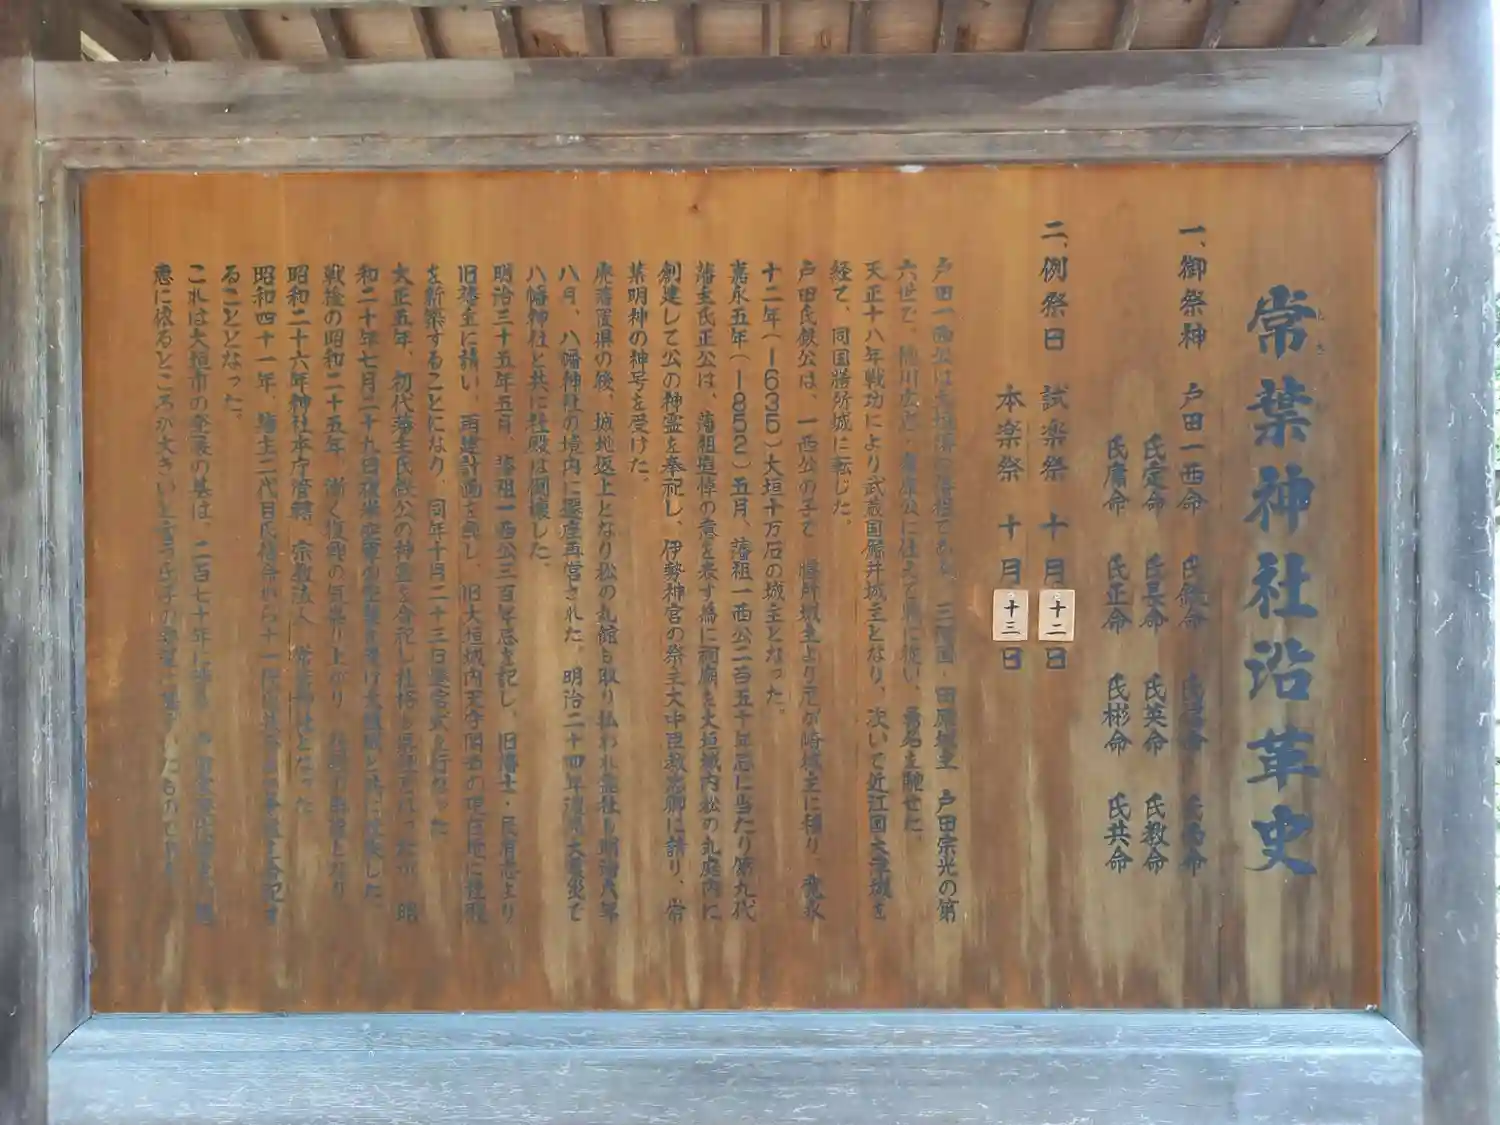 常葉神社沿革史
一、御祭神 戸田一西命 氏鉄命 氏信命 氏西命
氏定命 氏長命 氏英命 氏教命
氏庸命 氏正命 氏彬命 氏共命
二、例祭日 試楽祭 十月十二日
本楽祭 十月十三日
戸田一西公は大垣藩の藩祖であり、三河国・田原城主 戸田宗光の第
六世で、徳川広忠・家康公に仕えて戦に従い、勇名を馳せた。
天正十八年戦功により武蔵国鯨井城主となり、次いで近江国大津城を
経て、同国膳所城に転じた。
戸田氏鉄公は、一西公の子で 膳所城主より尼が崎城主に移り、寛永
十二年(1635)大垣十万石の城主となった。
嘉永五年(1852)五月、藩祖一西公二百五十年忌に当たり第九代
藩主氏正公は、藩祖追悼の意を表す為に祠廟を大垣城内松の丸庭内に
創建して公の神霊を奉祀し、伊勢神宮の祭主大中臣教忠卿に請り、常
葉明神の神号を受けた。
廃藩置県の後、城地返上となり松の丸館も取り払われ霊社も明治六年
八月、八幡神社の境内に遷座再営された。明治二十四年濃尾大震災で
八幡神社と共に社殿は倒壊した。
明治三十五年五月、藩祖一西公三百年忌を記し、旧藩士・民有志より
旧藩主に請い、再建計画を郎し、旧大垣城内天守閣西の現在地に社殿
を新築することになり、同年十月二十三日遷宮式を行なった
大正五年、初代藩主氏鉄公の神霊を合祀し社格も県社となったが、昭
和二十年七月二十九日夜米空軍の空襲を受け大垣城と共に焼失した。
戦後の昭和二十五年、漸く復興の気盛り上がり
昭和二十六年神社本庁管轄、宗教法人 常葉神社となった
昭和四十一年、藩主二代目氏信命から十一代氏共命
ることとなった。
これは大垣市の発展の基は、二百七十年に
恵に依るところが大きいと言う氏子の